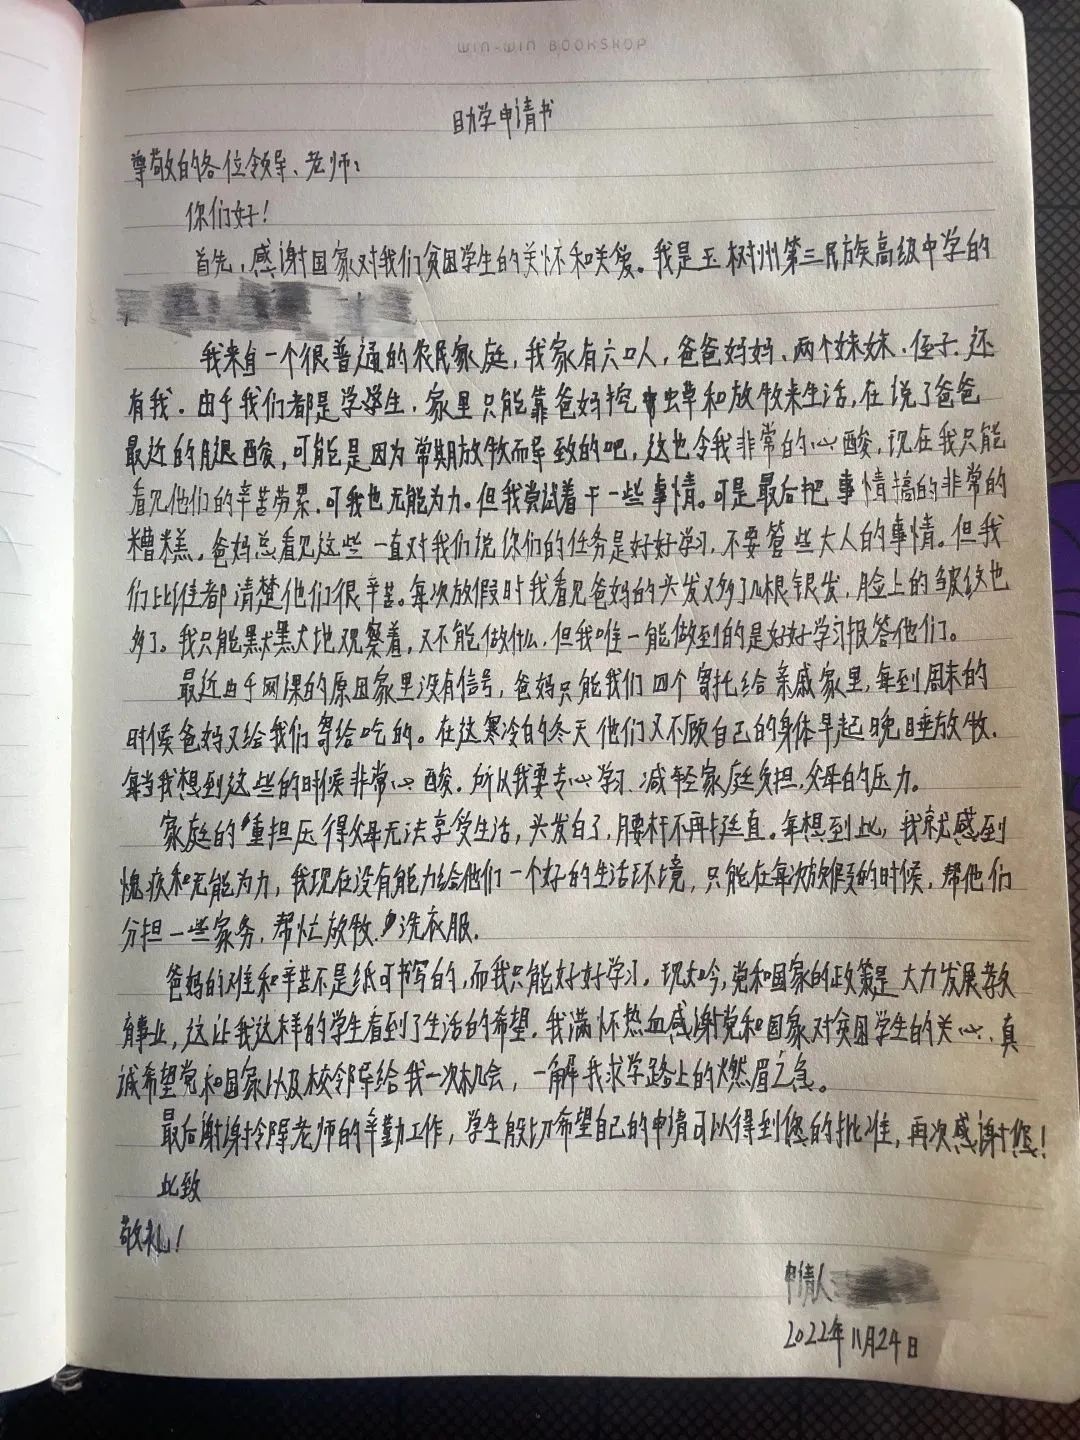 WIN-WIN BOOKSHOP
助学申请书
尊敬的各位领导、老师：
你们好！
首先，感谢国家对我们贫困学生的关怀和关爱。我是玉树州第三民族高级中学的
我来自一个很普通的农民家庭，我家有六口人，爸爸妈妈、两个妹妹、侄子、还
有我．由于我们都是学生．家里只能靠爸妈挖虫草和放牧来生活，在说了爸爸
最近的腿酸，可能是因为常期放牧而导致的吧，这也令我非常的心酸，现在我只能
看见他们的辛苦劳累．可我也无能为力。但我尝试着干一些事情。可是最后把事情搞的非常的
糟糕。爸妈总看见这些一直对我们说你们的任务是好好学习，不要管些大人的事情。但我
们比谁都清楚他们很辛苦。每次放假时我看见爸妈的头发又多了几根银发，脸上的皱纹也
多了。我只能默默地观察着，又不能做什么．但我唯一能做到的是好好学习报答他们。
最近由于网课的原因家里没有信号，爸妈只能我们四个寄托给亲戚家里，每到周末的
时候爸妈又给我们寄给吃的。在这寒冷的冬天他们又不顾自己的身体早起晚睡放牧．
每当我想到这些的时候非常心酸．所以我要专心学习、减轻家庭负担，父母的压力。
家庭的重担压得父母无法享受生活，头发白了，腰杆不再挺直。每想到此，我就感到
愧疚和无能为力，我现在没有能力给他们一个好的生活环境，只能在每次放假的时候，帮他们
分担一些家务，帮忙放牧．洗衣服．
爸妈的难和辛苦不是纸可书写的，而我只能好好学习．现如今，党和国家的政策是大力发展教
育事业，这让我这样的学生看到了生活的希望．我满怀热血感谢党和国家对贫困学生的关心、真
诚希望党和国家以及校领导给我一次机会，一解我求学路上的燃眉之急。
最后谢谢领导老师的辛勤工作，学生殷切希望自己的申请可以得到您的批准，再次感谢您！
此致
敬礼！
申请人
2022年11月24日